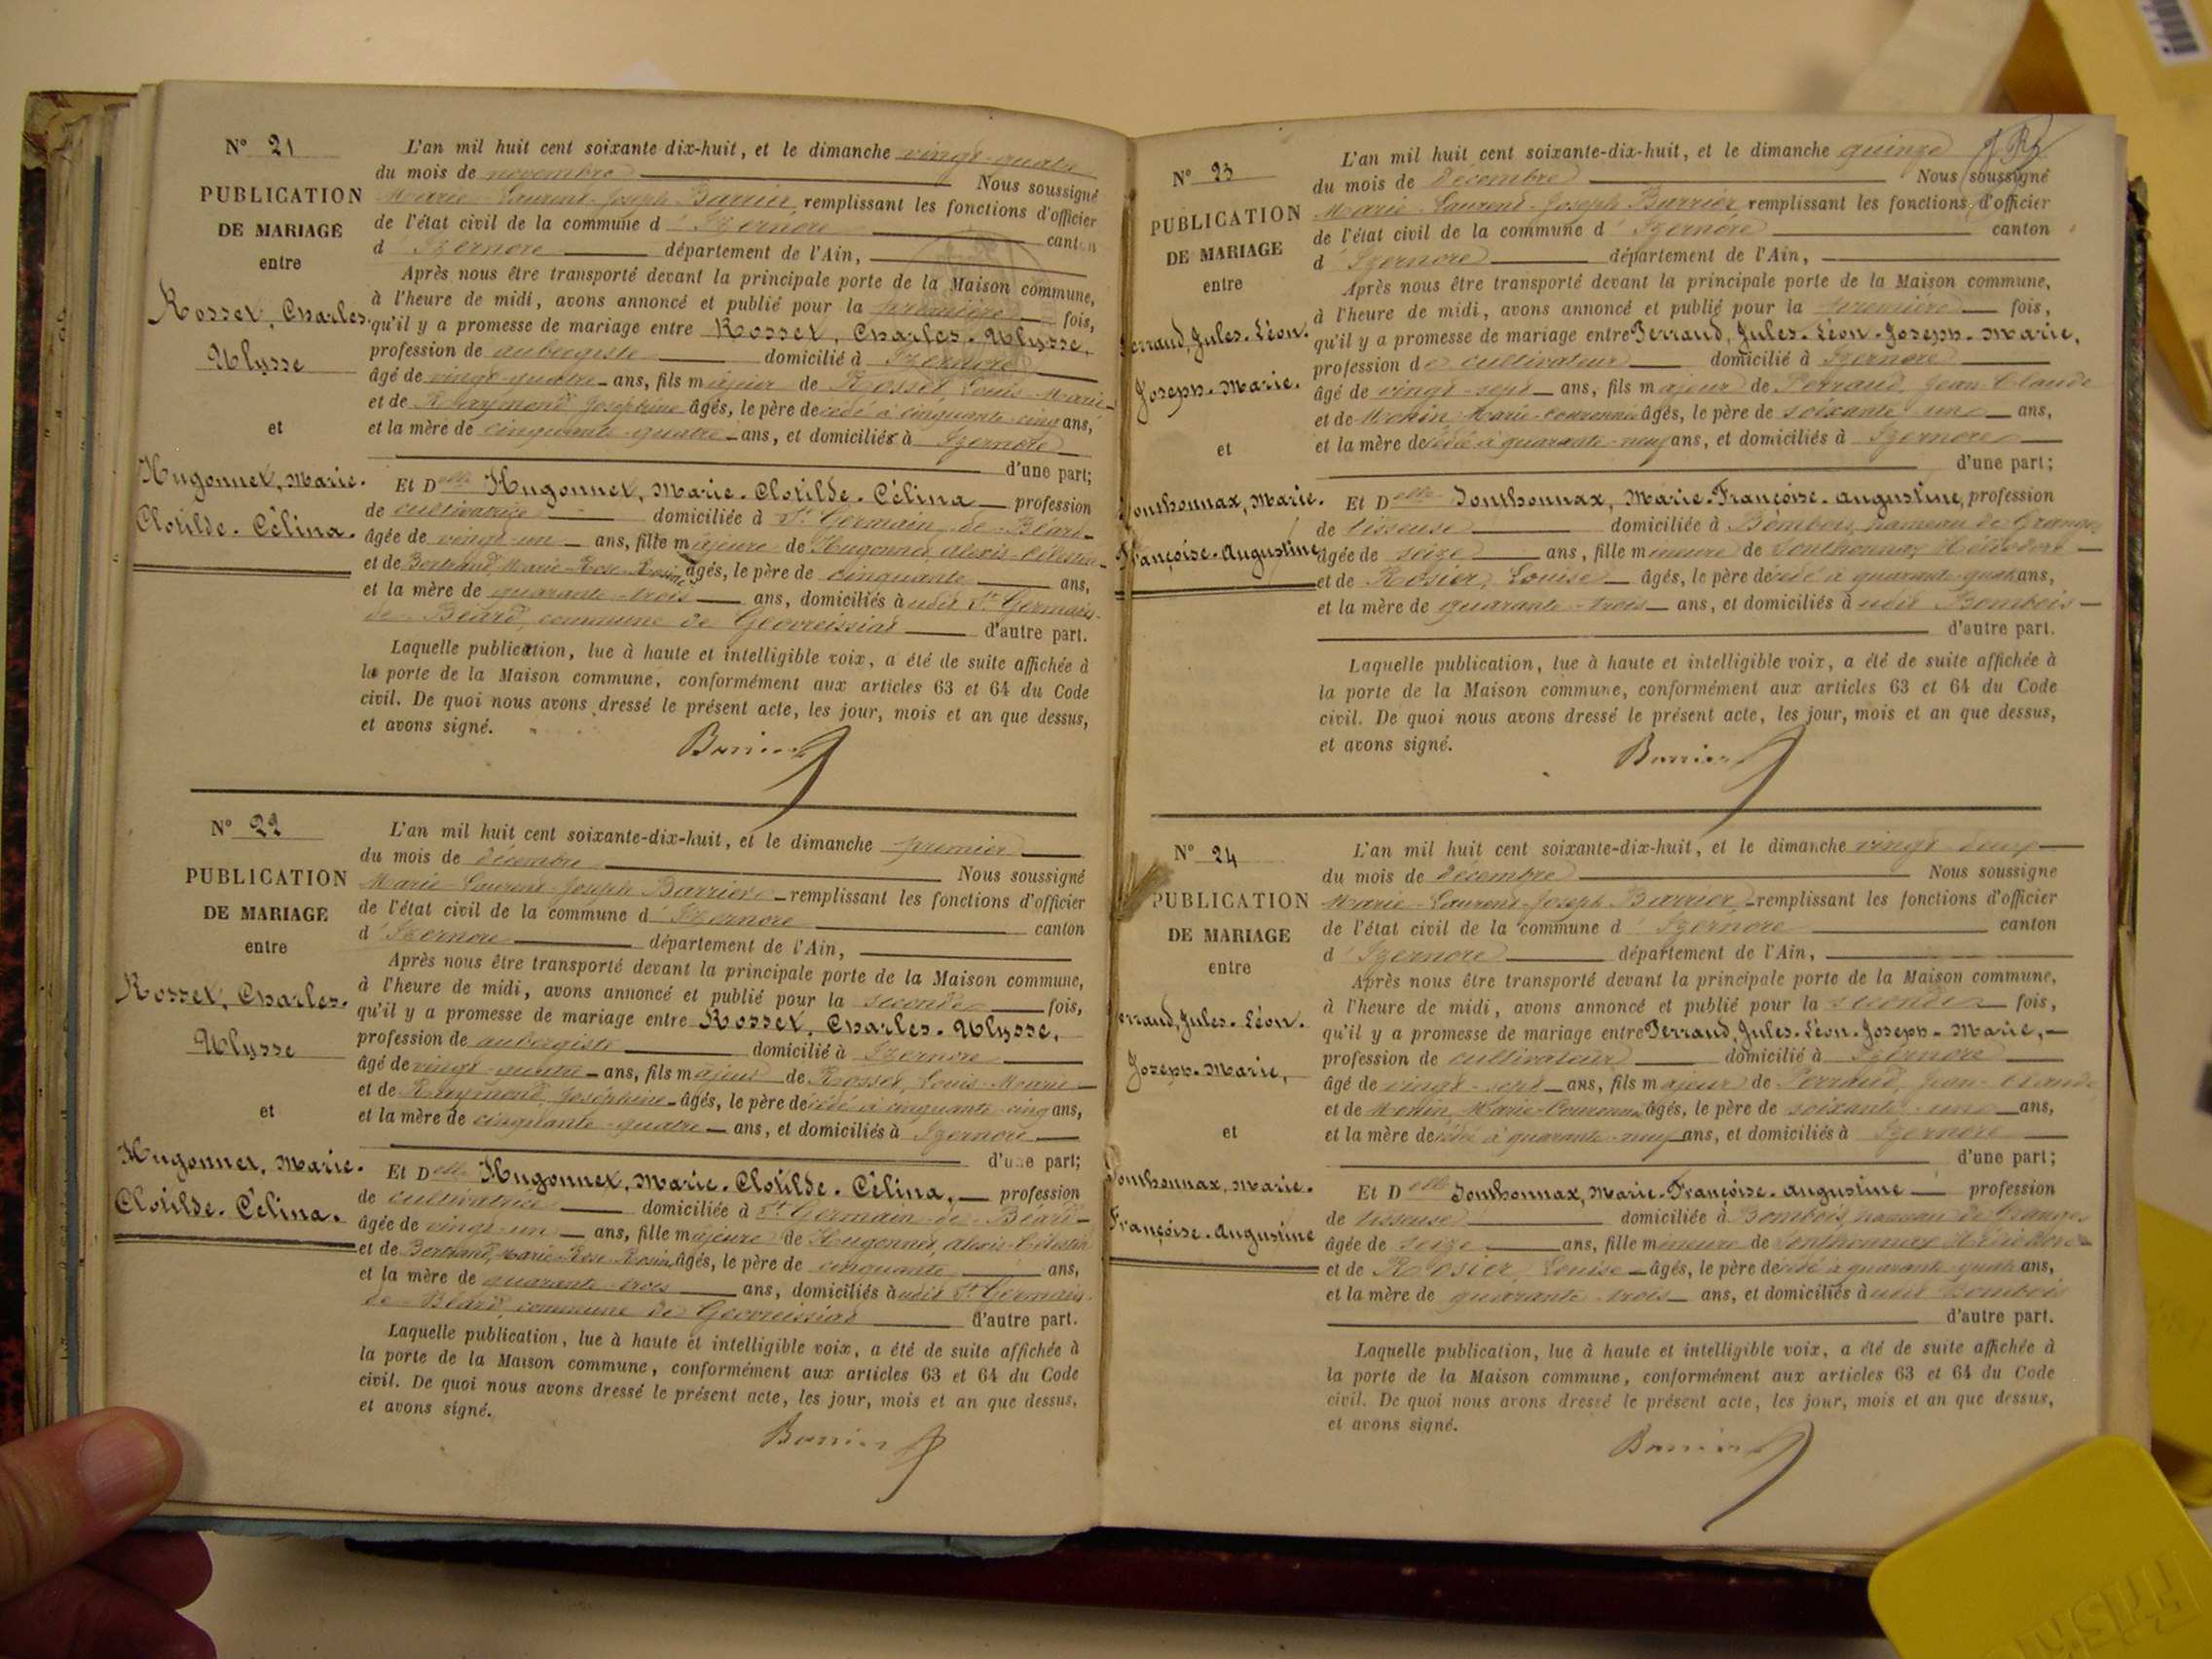 N° 21
PUBLICATION
DE MARIAGE
entre
Rosset, Charles.
Ulysse
et
Hugonnet, Marie.
Clotilde. Célina.
L'an mil huit cent soixante dix-huit, et le dimanche vingt-quatre
du mois de novembre Nous soussigné
Marie-Laurent-Joseph Barrier, remplissant les fonctions d'officier
de l'état civil de la commune d'Izernore canton
d'Izernore département de l'Ain,
Après nous être transporté devant la principale porte de la Maison commune,
à l'heure de midi, avons annoncé et publié pour la première fois,
qu'il y a promesse de mariage entre Rosset, Charles. Ulysse,
profession de aubergiste domicilié à Izernore
âgé de vingt-quatre ans, fils majeur de Rosset Louis-Marie
et de Raymond Joséphine âgés, le père décédé à cinquante-cinq ans,
et la mère de cinquante-quatre ans, et domiciliés à Izernore
d'une part;
Et Delle Hugonnet, Marie. Clotilde. Célina profession
de cultivatrice domiciliée à St Germain-de-Béard
âgée de vingt-un ans, fille majeure de Hugonnet Alexis-Célestin
et de Bertrand, Marie-Rose-Rosine âgés, le père de cinquante ans,
et la mère de quarante-trois ans, domiciliés à udit St Germain-
de-Béard, commune de Geovreissiat d'autre part.
Laquelle publication, lue à haute et intelligible voix, a été de suite affichée à
la porte de la Maison commune, conformément aux articles 63 et 64 du Code
civil. De quoi nous avons dressé le présent acte, les jour, mois et an que dessus,
et avons signé.
Barrier
N° 22
PUBLICATION
DE MARIAGE
entre
Rosset, Charles.
Ulysse
et
Hugonnet, Marie.
Clotilde. Célina.
L'an mil huit cent soixante-dix-huit, et le dimanche premier
du mois de décembre Nous soussigné
Marie-Laurent-Joseph Barrier remplissant les fonctions d'officier
de l'état civil de la commune d'Izernore canton
d'Izernore département de l'Ain,
Après nous être transporté devant la principale porte de la Maison commune,
à l'heure de midi, avons annoncé et publié pour la seconde fois,
qu'il y a promesse de mariage entre Rosset, Charles. Ulysse,
profession de aubergiste domicilié à Izernore
âgé de vingt-quatre ans, fils majeur de Rosset, Louis-Marie
et de Raymond, Joséphine âgés, le père décédé à cinquante-cinq ans,
et la mère de cinquante-quatre ans, et domiciliés à Izernore
d'une part;
Et Delle Hugonnet, Marie. Clotilde. Célina, profession
de cultivatrice domiciliée à St Germain-de-Béard
âgée de vingt-un ans, fille majeure de Hugonnet, Alexis-Célestin
et de Bertrand, Marie-Rose-Rosine âgés, le père de cinquante ans,
et la mère de quarante-trois ans, domiciliés à udit St Germain
de-Béard, commune de Geovreissiat d'autre part.
Laquelle publication, lue à haute et intelligible voix, a été de suite affichée à
la porte de la Maison commune, conformément aux articles 63 et 64 du Code
civil. De quoi nous avons dressé le présent acte, les jour, mois et an que dessus,
et avons signé.
Barrier
N° 23
PUBLICATION
DE MARIAGE
entre
Perraud, Jules. Léon.
Joseph. Marie.
et
Jonthonnax, Marie.
Françoise. Augustine
L'an mil huit cent soixante-dix-huit, et le dimanche quinze
du mois de décembre Nous soussigné
Marie-Laurent-Joseph Barrier, remplissant les fonctions d'officier
de l'état civil de la commune d'Izernore canton
d'Izernore département de l'Ain,
Après nous être transporté devant la principale porte de la Maison commune,
à l'heure de midi, avons annoncé et publié pour la première fois,
qu'il y a promesse de mariage entre Perraud, Jules. Léon. Joseph. Marie,
profession de cultivateur domicilié à Izernore
âgé de vingt-sept ans, fils majeur de Perraud, Jean-Claude
et de Monin, Marie âgés, le père de soixante-un ans,
et la mère décédée à quarante-neuf ans, et domiciliés à Izernore
d'une part;
Et Delle Jonthonnax, Marie. Françoise. Augustine, profession
de tisseuse domiciliée à Bombois, hameau de Granges
âgée de seize ans, fille mineure de Jonthonnax Héliodore
et de Rosier, Louise âgés, le père décédé à quarante-quatre ans,
et la mère de quarante-trois ans, et domiciliés à udit Bombois
d'autre part.
Laquelle publication, lue à haute et intelligible voix, a été de suite affichée à
la porte de la Maison commune, conformément aux articles 63 et 64 du Code
civil. De quoi nous avons dressé le présent acte, les jour, mois et an que dessus,
et avons signé.
Barrier
N° 24
PUBLICATION
DE MARIAGE
entre
Perraud, Jules. Léon.
Joseph. Marie,
et
Jonthonnax, Marie.
Françoise. Augustine
L'an mil huit cent soixante-dix-huit, et le dimanche vingt-deux
du mois de décembre Nous soussigné
Marie-Laurent-Joseph Barrier remplissant les fonctions d'officier
de l'état civil de la commune d'Izernore canton
d'Izernore département de l'Ain,
Après nous être transporté devant la principale porte de la Maison commune,
à l'heure de midi, avons annoncé et publié pour la seconde fois,
qu'il y a promesse de mariage entre Perraud, Jules. Léon. Joseph. Marie,
profession de cultivateur domicilié à Izernore
âgé de vingt-sept ans, fils majeur de Perraud, Jean-Claude
et de Monin, Marie âgés, le père de soixante-un ans,
et la mère décédée à quarante-neuf ans, et domiciliés à Izernore
d'une part;
Et Delle Jonthonnax, Marie. Françoise. Augustine profession
de tisseuse domiciliée à Bombois, hameau de Granges
âgée de seize ans, fille mineure de Jonthonnax Héliodore
et de Rosier, Louise âgés, le père décédé à quarante-quatre ans,
et la mère de quarante-trois ans, et domiciliés à udit Bombois
d'autre part.
Laquelle publication, lue à haute et intelligible voix, a été de suite affichée à
la porte de la Maison commune, conformément aux articles 63 et 64 du Code
civil. De quoi nous avons dressé le présent acte, les jour, mois et an que dessus,
et avons signé.
Barrier